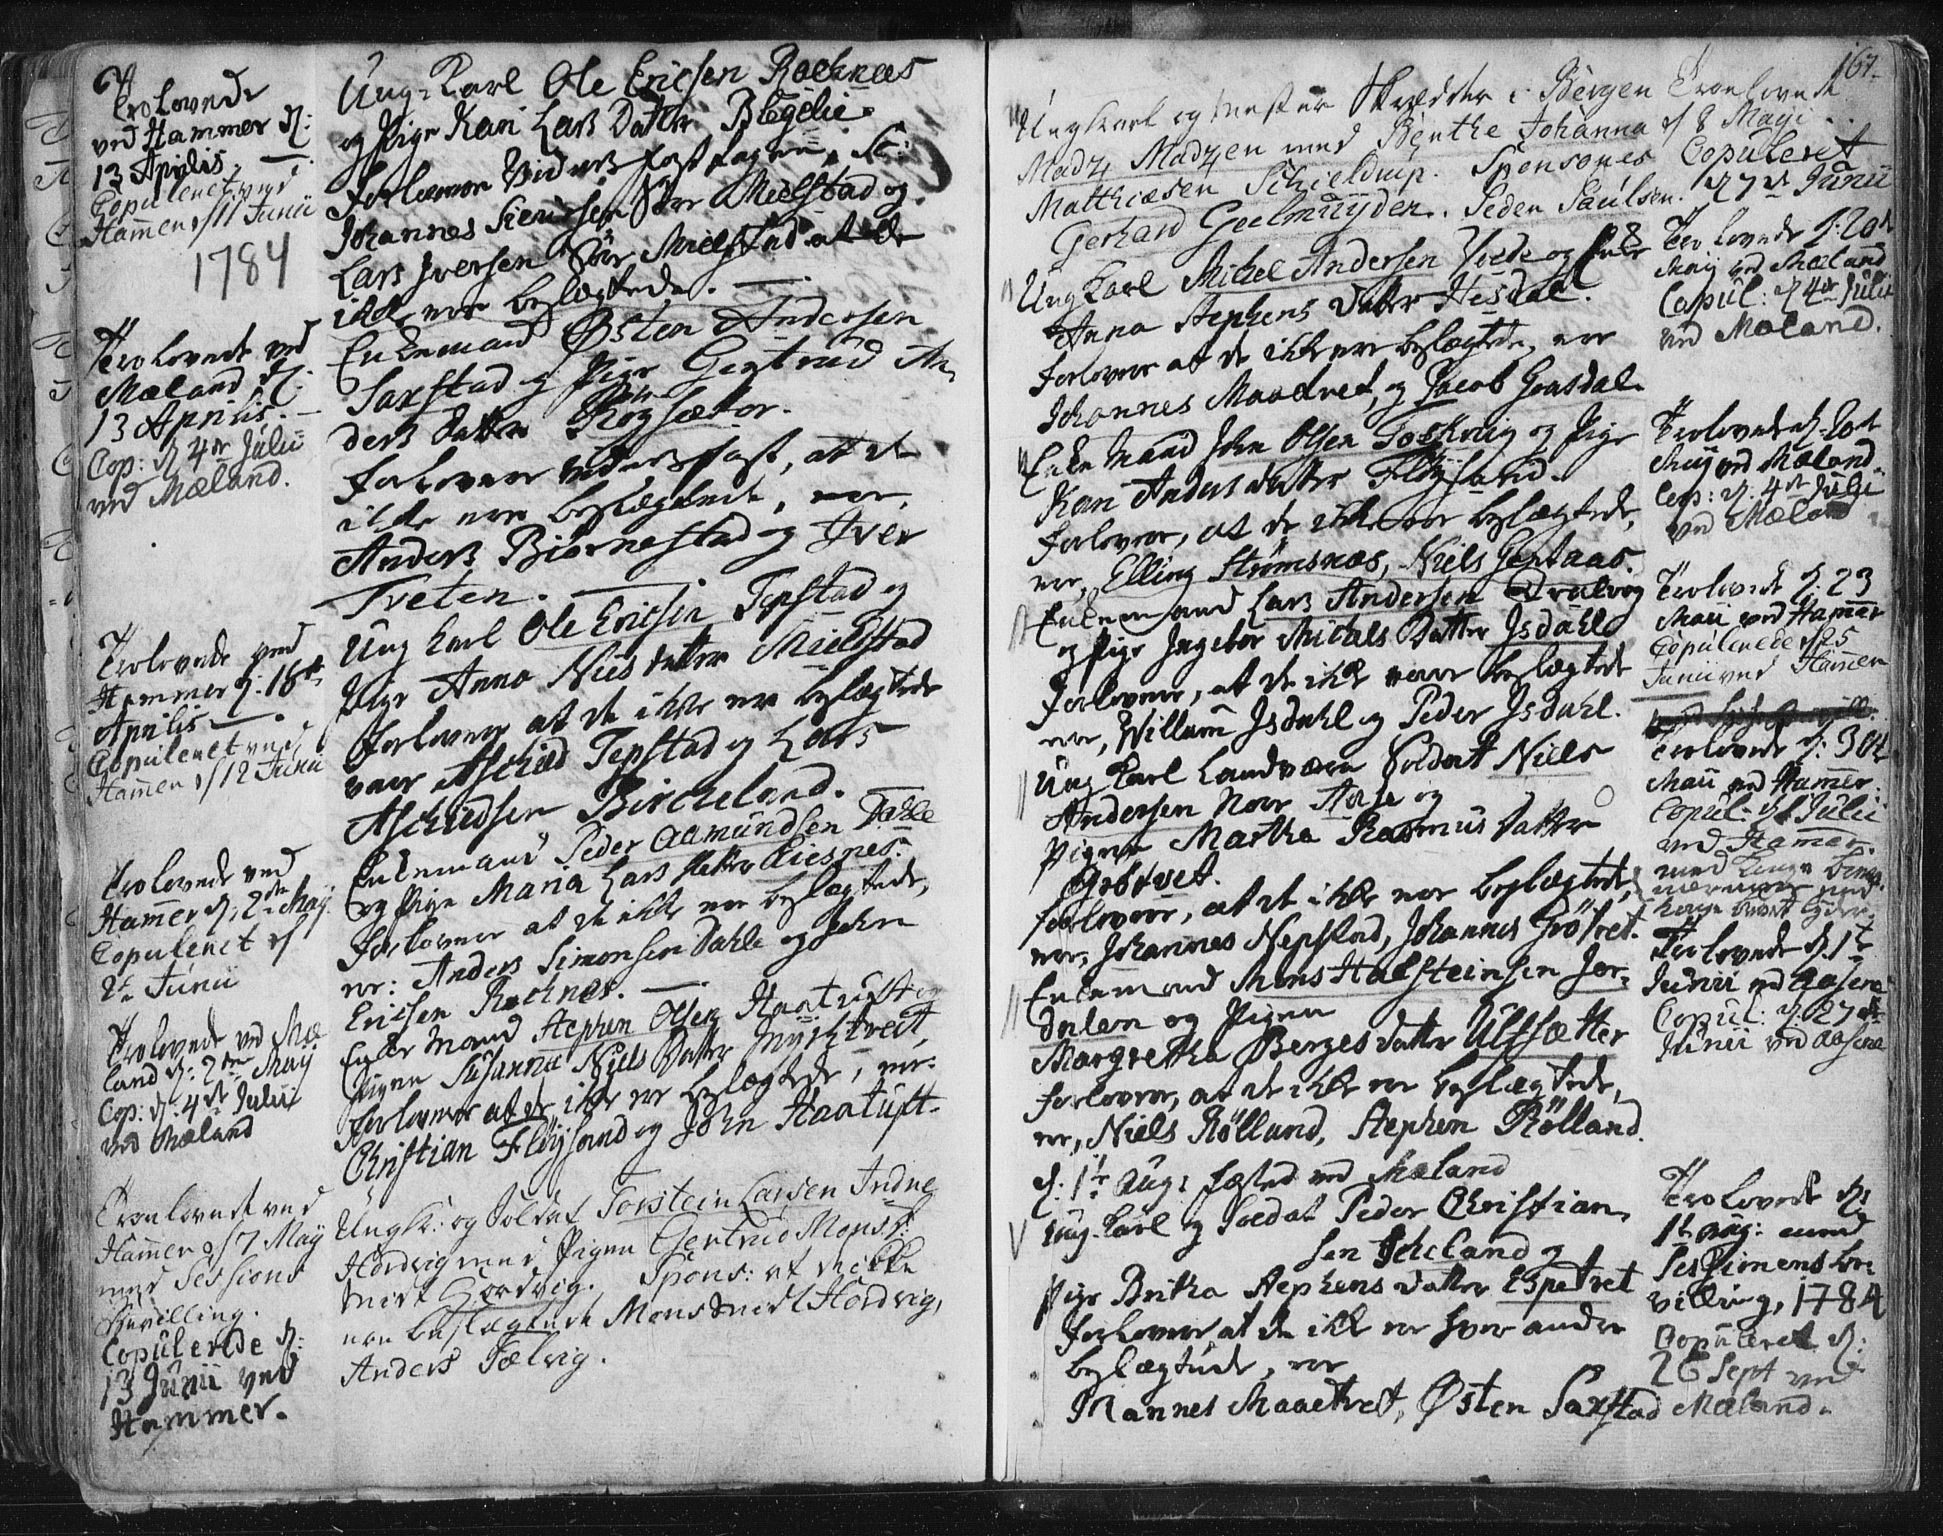 Trolovede
ved Hammer d:
13 Aprilis.
Copuleret ved
Hammer d 11 Junii
1784
Ung-Karl Ole Ericsen Rochnæs
og Pige Kari Lars Datter Blegelie
Forlovere
Johannes Store Mielstad og
Lars Iversen Store Mielstad at de
ikke ere beslægtede.
Trolovede ved
Mæland d:
13 Aprilis.
Cop: d 4de Julii
ved Mæland.
Enkemand Østen Andersen
Saxstad og Pige Giertrud An-
ders Datter Røysæter.
Forlovere at de
ikke ere beslægtede, ere,
Anders Biørnestad og Iver
Tveten.
Trolovede ved
Hammer d: 18de
Aprilis
Copuleret ved
Hammer d 12 Junii
Ung Karl Ole Ericsen Tepstad og
Pige Anna Niels datter Mielstad
Forlovere at de ikke ere beslægtede
vare Aschild Tepstad og Lars
Aschildsen Bircheland.
Trolovede ved
Hammer d: 2den May
Copuleret d
2de Junii
Enkemand Peder Aamundsen Dahle
og Pige Maria Lars datter Riesnes.
Forlovere at de ikke ere beslægtede,
ere: Anders Simonsen Dahle og John
Ericsen Rochnes.
Trolovede ved Mæ-
land d: 2den May
Cop: d: 4de Julii
ved Mæland
Enke Mand Stephen Olsen Haatuft og
Pigen Susanna Niels Datter Myrktveit,
Forlovere at de ikke ere beslægtede, ere.
Christian Fløysand og John Haatuft.
Troelovede ved
Hammer d 7 May
med Sessions
Bevilling.
Copulerede d:
13 Junii ved
Hammer.
Ungk: og Soldat Torstein Larsen Indre
Hordvig med Pigen Gertrud Mons d:
Midt Hordvig. Spons: at de ikke
ere beslægtede Mons Midt Hordvig,
Anders Tælvig.
167.
Ungkarl og Mester Skrædder i Bergen
Madz Madzen med Benthe Johanna
Matthiæsen Schieldrup. Sponsores
Gerhard Geelmuyden. Peder Paulsen.
Troelovede
d 8 Maji
Copuleret
d 7de Junii
Ung Karl Michel Andersen Tvede og Enke
Anna Stephens Datter Hesdal.
Forlovere at de ikke ere beslægtede, ere
Johannes Maaetvet, og Jacob Gonsdal.
Trolovede d: 20de
Maij ved Mæland
Copul: d 4de Julii
ved Mæland.
Enke Mand John Olsen Toskrug og Pige
Kari Anders datter Fløysand.
Forlovere, at de ikke ere beslægtede,
ere, Elling Strømsnæs, Niels Geptaas.
Trolovede d: 20de
Maij ved Mæland
Cop: d: 4de Julii
ved Mæland
Enkemand Lars Andersen Qvalvog
og Pige Ingebor Michels Datter Isdahl
Forlovere, at de ikke vare beslægtede
ere, Willum Isdahl og Peder Isdahl.
Trolovede d: 23
Maii ved Hammer
Copulerede d 25
Junii ved Hammer
Ung Karl Landværn Soldat Niels
Andersen Norr
Pigen Martha Rasmus Datter
Grøtvet.
Forlovere, at de ikke ere beslægtede,
ere, Johannes Nepstad, Johannes Grøtvet.
Trolovede d: 30te
Maii ved Hammer
Copul: d 1 Julii
ved Hammer.
Enkemand Mons Halsteinsen Jor-
dalen og Pigen
Margretha Berges datter Ulfsætter
Forlovere, at de ikke ere beslægtede,
ere, Niels Rölland, Stephen Rölland.
Trolovede d: 1te
Junii ved Aasene
Copul: d: 27de
Junii ved Aasene
d: 1te Aug: fæsted ved Mæland
Ung Karl og Soldat Peder Christian-
sen Scheland og
Pige Britha Stephens Datter Espetvet
Forlovere at de ikke ere hver andre
beslægtede, ere
Mannes Maaetvet, Østen Saxstad
Trolovede d:
1te Aug: med
Regiments be-
villing, 1784
Copuleret d:
26 Sept ved
Mæland.